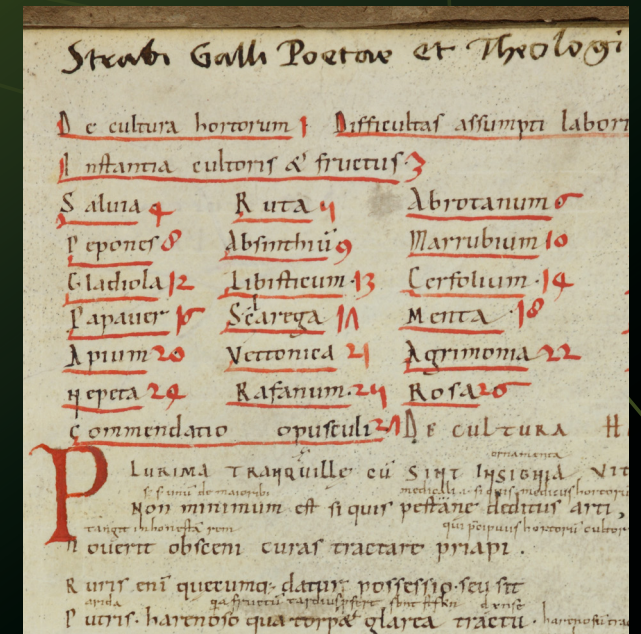 Strabi Galli Poetae et Theologi
De cultura hortorum 1 Difficultas assumpti labori
Instantia cultoris & fructus. 3
Saluia 4 Ruta 5 Abrotanum 6
Pepones 8 Absinthiū 9 Marrubium 10
Gladiola 12 Libisticum. 13 Cerfolium. 14
Papauer 16 Sclarega 17 Menta. 18
Apium 20 Vettonica 21 Agrimonia 22
Nepeta 24 Rafanum. 25 Rosa 26
Commendatio opusculi 27 DE CULTURA H
ornamenta
PLURIMA TRANQUILLE CŪ SINT INSIGNIA VIT
Non minimum est si quis pestane deditus arti,
tangit inhonestā rem
Nouerit obsceni curas tractare priapi.
Ruris eni quecumq; datur possessio. seu sit
arida
Putris. harenoso qua torpet glarea tractu.